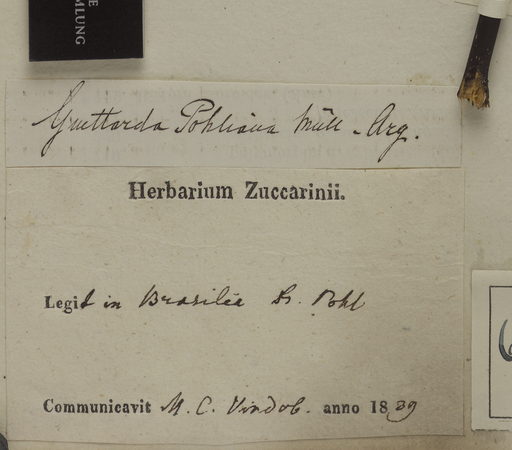 E
MLUNG
Guettarda Pohliana Müll. Arg.
Herbarium Zuccarinii.
Legit in Brasilia Dr. Pohl
Communicavit M. C. Vindob. anno 1839